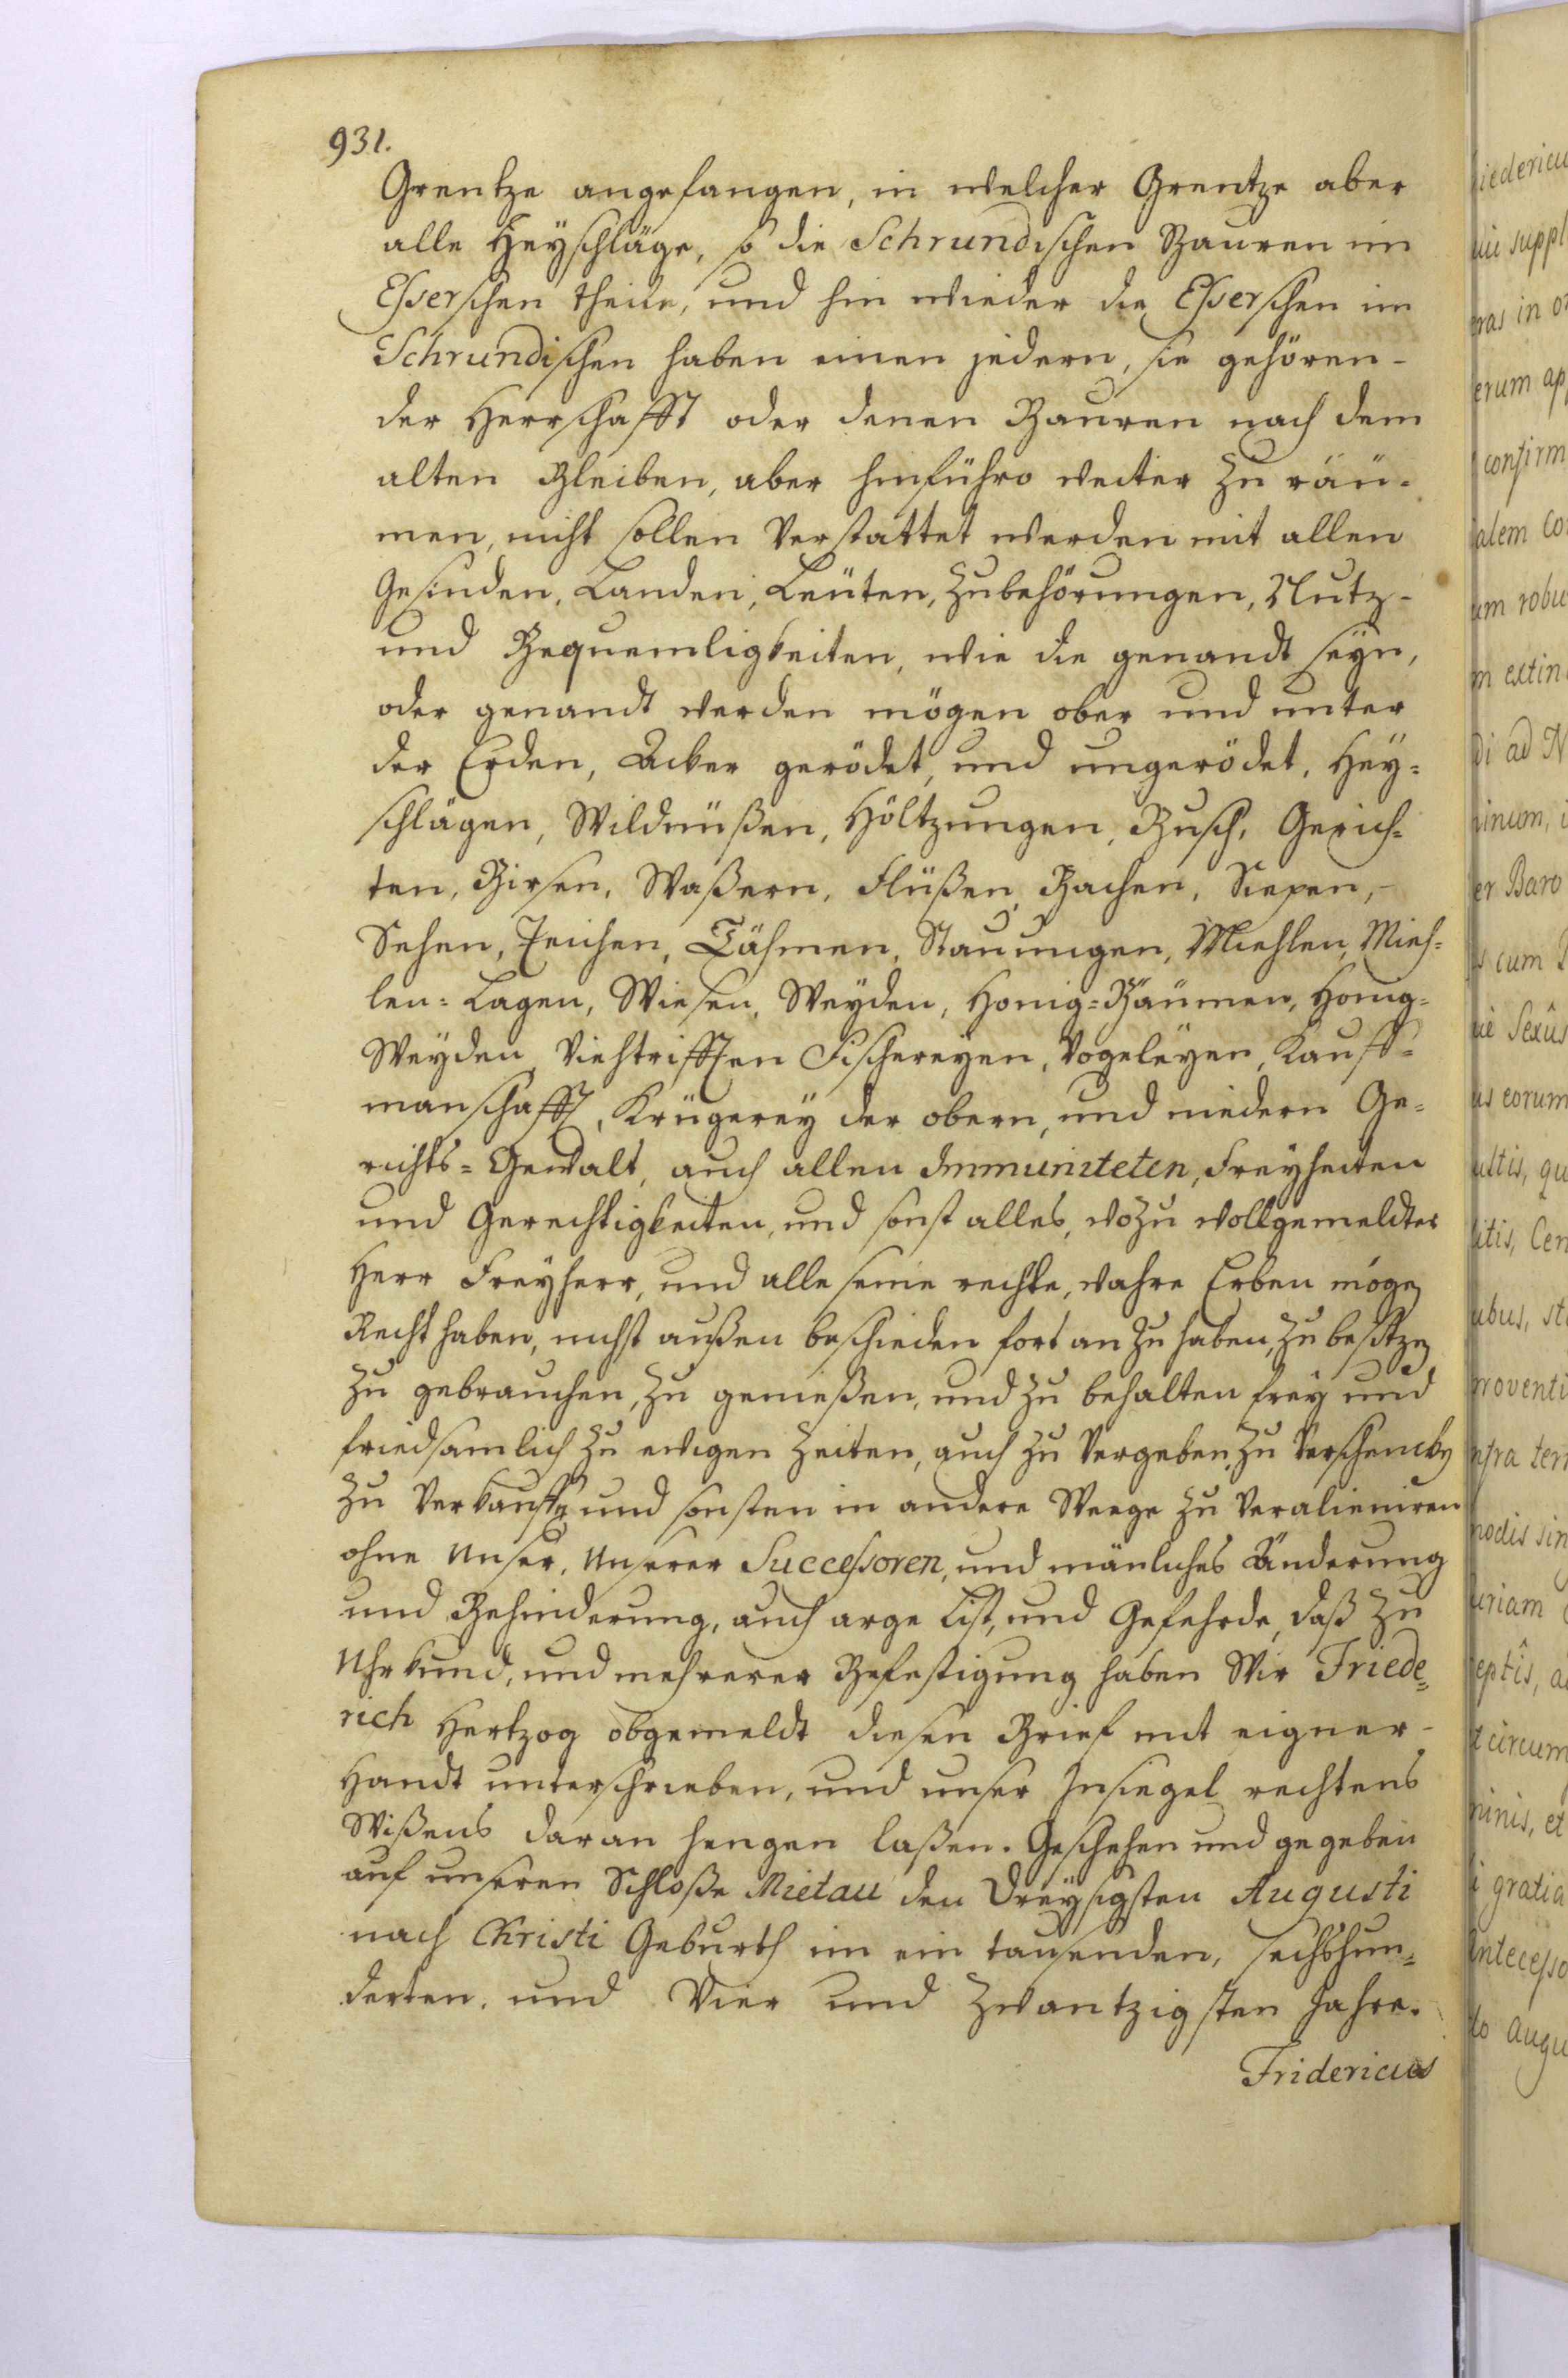 931.
Grentze angefangen, in welcher Grentze aber
alle Heyschläge, so die Schrundischen Bauren im
Esserschen theile, und hin wieder die Esserschen im
Schrundischen haben einen jedern, sie gehören-
der Herrschafft oder denen Bauren nach dem
alten Bleiben, aber hinführo weiter zu räu-
men, nicht sollen Verstattet werden mit allen
Gesinden, Landen, Leüten, Zubehörungen, Nutz-
und Bequemligkeiten, wie die genandt seyn,
oder genandt werden mögen ober und unter
der Erden, Acker gerödet, und ungerödet, Hey=
schlägen, Wildnüßen, Höltzungen, Busch, Gerich=
ten, Birsen, Waßern, Flüßen, Bachen, Siepen,-
Sehen, Teichen, Tähmen, Stauungen, Miehlen, Mieh=
len=Lagen, Wiesen, Weyden, Honig=Bäumen, Honig=
Weyden, Viehtrifften Fischereyen, Vogeleyen, Kauff=
manschafft, Krügerey der obern, und niedern Ge=
richts=Gewalt, auch allen Immuniteten, Freyheiten
und Gerechtigkeiten, und sonst alles, wozu wollgemeldter
Herr Freyherr, und alle seine rechte, wahre Erben mögen
Recht haben, nichst außen beschieden fort an zu haben, zu besitzen
zu gebrauchen, zu genießen, und zu behalten frey und
friedsamlich zu ewigen Zeiten, auch zu Vergeben, zu Verschencken
zu Verkauffen und sonsten in andere Weege zu Veralieniren
ohne Unser, Unserer Successoren, und mänliches Änderung
und Behinderung, auch arge List, und Gefehrde, daß zu
Uhrkund, und mehrerer Befestigung haben Wir Friede=
rich Hertzog obgemeldt diesen Brief mit eigner-
Handt unterschrieben, und unser Insiegel rechtens
Wißens daran hengen laßen. Geschehen und gegeben
auf unseren Schloße Mietau den Dreysigsten Augusti
nach Christi Geburth im ein tausenden, sechshun=
derten, und Vier und Zwantzigsten Jahre.
Fridericus